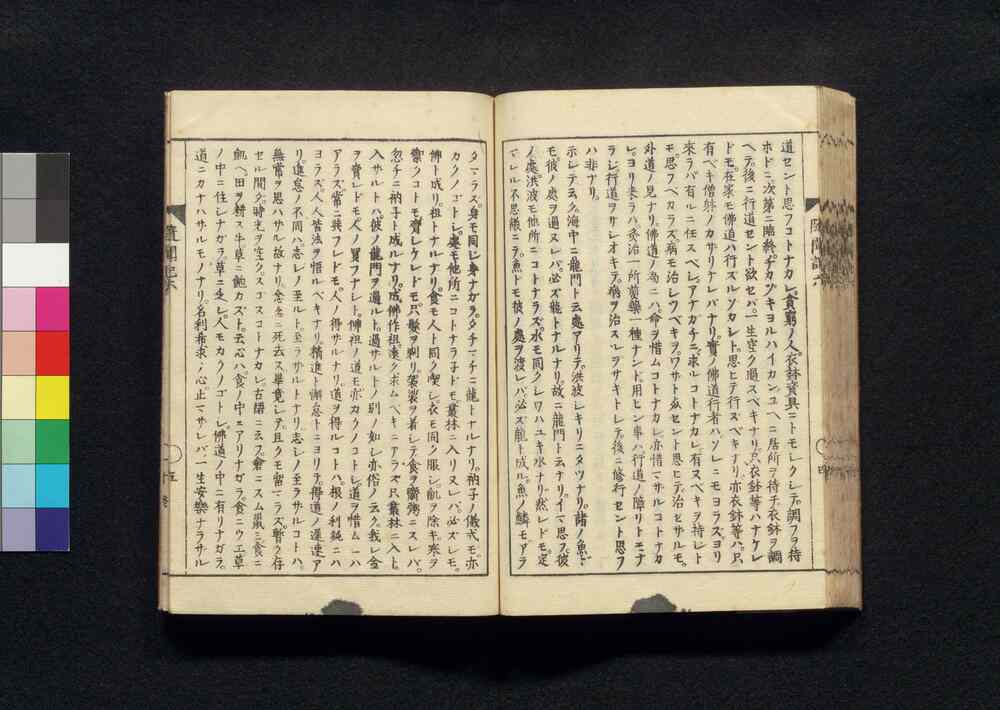 道セント思フコトナカレ貧窮ノ人衣鉢資具ニトモシクシテ調フヲ待
ホドニ次第ニ臨終チカヅキヨルハイカンユヘニ居所ヲ待チ衣鉢ヲ調
ヘテ後ニ行道セント欲セバ一生空ク過スベキナリ只衣鉢等ハナケレ
ドモ在家モ佛道ハ行スルゾカシト思ヒテ行スベキナリ亦衣鉢等ハ只
有ベキ僧躰ノカサリナレバナリ實ノ佛道行者ハソレニモヨラスヨリ
來ラバ有ルニ任スベシアナガチニ求ルコトナカレ有スベキヲ持シト
モ思フベカラズ病モ治シツベキヲワサト死セント思ヒテ治セサルモ
外道ノ見ナリ佛道ノ為ニハ命ヲ惜ムコトナカレ亦惜マサルコトナカ
レヨリ来ラハ灸治一所煎藥一種ナンド用ヒン事ハ行道ノ障リトモナ
ラシ行道ヲサシオキテ病ヲ治スルヲサキトシテ後ニ修行セント思フ
ハ非ナリ
示シテ云ク海中ニ龍門ト云處アリテ洪波シキリニタツナリ諸ノ魚ド
モ彼ノ處ヲ過ヌレバ必ズ龍トナルナリ故ニ龍門ト云ナリイマ思フ彼
ノ處洪波モ他所ニコトナラズ水モ同クシワハユキ水ナリ然レドモ定
マレル不思議ニテ魚ドモ彼ノ處ヲ渡レバ必ズ龍ト成ル魚ノ鱗モアラ
タマラズ身モ同シ身ナガラタチマチニ龍トナルナリ衲子ノ儀式モ亦
カクノゴトシ處モ他所ニコトナラ子ドモ叢林ニ入リヌレバ必ズシモ
佛ト成リ祖トナルナリ食モ人ト同ク喫シ衣モ同ク服シ飢ヲ除キ寒ヲ
禦クコトモ齊シケレドモ只髮ヲ剃リ袈裟ヲ着シテ食ヲ齋粥ニスレバ
忽チニ衲子ト成ルナリ成佛作祖遠クボムベキニアラズ只叢林ニ入ト
入サルトハ彼ノ龍門ヲ過ルト過サルトノ別ノ如シ亦俗ノ云ク我レ金
ヲ賣レドモ人ノ買フナシト佛祖ノ道モ亦カクノコトシ道ヲ惜ムニハ
アラズ常ニ與フレドモ人ノ得サルナリ道ヲ得ルコトハ根ノ利鈍ニハ
ヨラズ人人皆法ヲ悟ルベキナリ精進ト懈怠トニヨリテ得道ノ遲速ア
リ進怠ノ不同ハ志シノ至ルト至ラサルトナリ志シノ至ラサルコトハ
無常ヲ思ハサル故ナリ念念ニ死去ス畢竟シテ且クモ留マラズ暫クモ存
セル間ダ時光ヲ空クスゴスコトナカレ古語ニ云フ倉ニスム鼠ニ食ニ
飢ヘ田ヲ耕ス牛草ニ飽カズト云心ハ食ノ中ニアリナガラ食ニウエ草
ノ中ニ住シナガラ草ニ乏シ人モカクノゴトシ佛道ノ中ニ有リナガラ
道ニカナハサルモノナリ名利希求ノ心止マサレバ一生安樂ナラサル
隨聞記六
四
隨聞記六
五